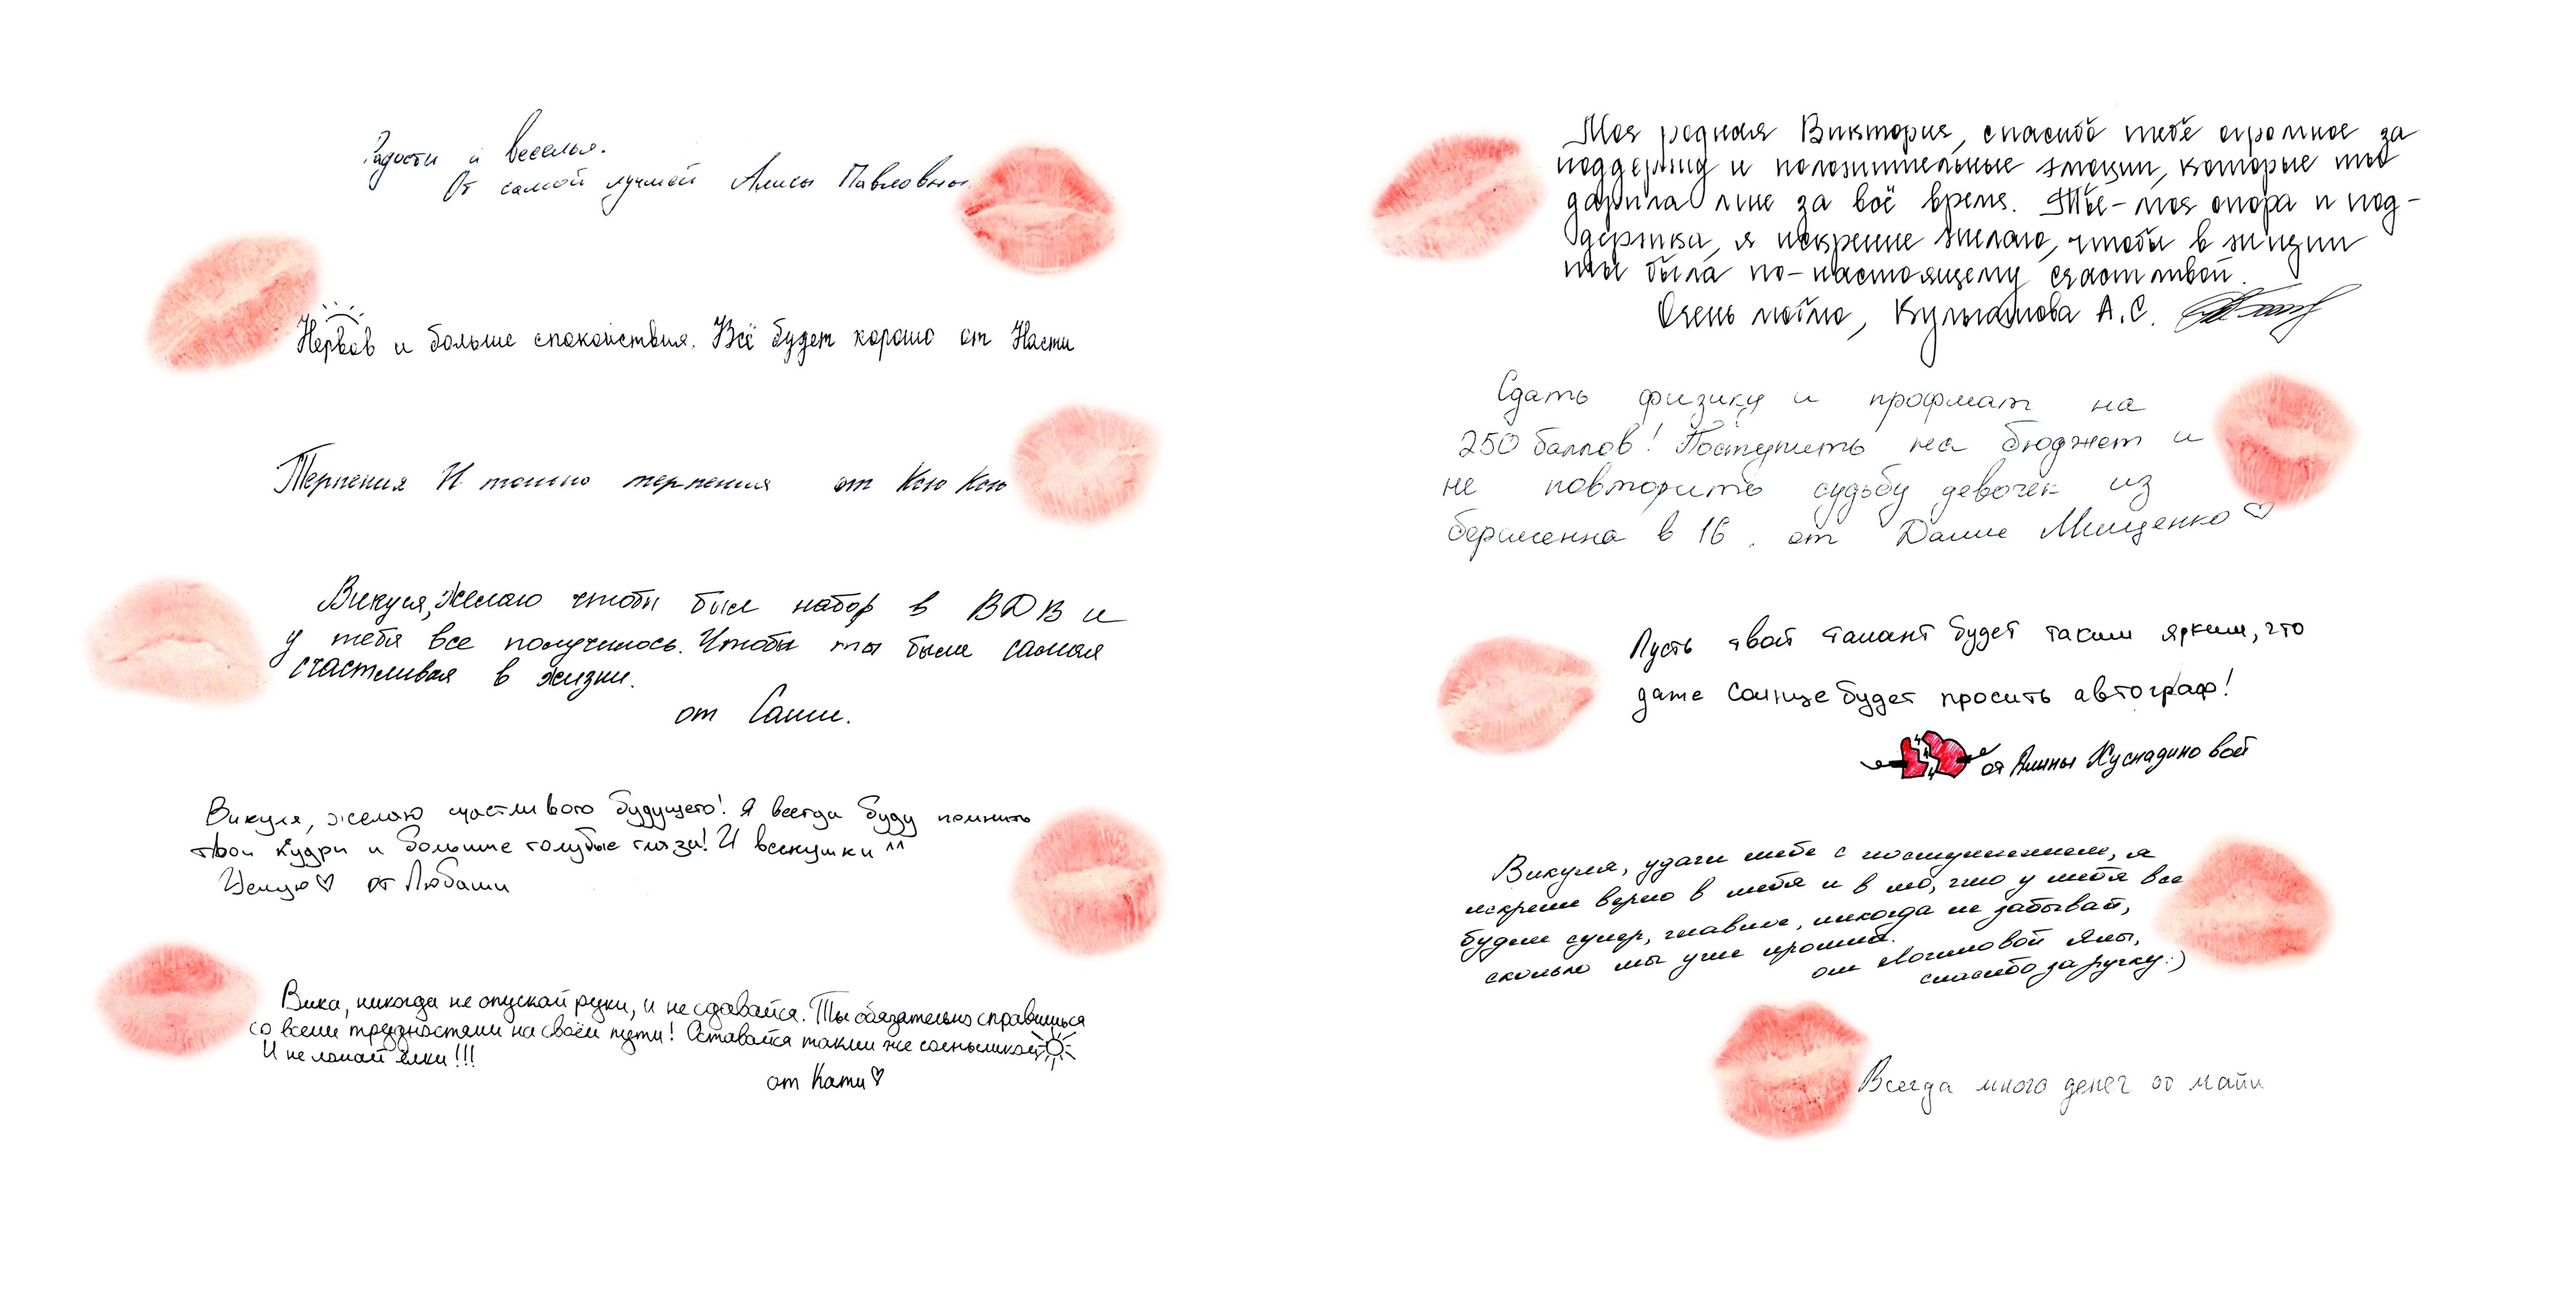 Радости и веселья.
От самой лучшей Алисы Павловны.
Нервов и больше спокойствия. Всё будет хорошо от Насти
Терпения И только терпения от Ксю Ксю
Викуля, желаю чтобы был набор в ВДВ и
у тебя все получилось. Чтобы ты была самая
счастливая в жизни.
от Саши.
Викуля, желаю счастливого будущего! Я всегда буду помнить
твои кудри и большие голубые глаза! И веснушки ^^
Целую♡ от Любаши
Вика, никогда не опускай руки, и не сдавайся. Ты обязательно справишься
со всеми трудностями на своём пути! Оставайся таким же солнышком
И не ломай ёлки!!!
от Кати♡
Моя родная Виктория, спасибо тебе огромное за
поддержку и положительные эмоции, которые ты
дарила мне за всё время. Ты - моя опора и под-
держка, я искренне желаю, чтобы в жизни
ты была по-настоящему счастливой.
Очень люблю, А.С.
Сдать физику и профмат на
250 баллов! Поступить на бюджет и
не повторить судьбу девочек из
беременна в 16. от Даши Мищенко ♡
Пусть твой талант будет таким ярким, что
даже Солнце будет просить автограф!
от Алины Хуснадиновой
Викуля, удачи тебе с поступлением, я
искренне верю в тебя и в то, что у тебя все
будет супер, главное, никогда не забывай,
сколько мы уже прошли.
от Логиновой Яны,
спасибо за ручку:)
Всегда много денег от майи